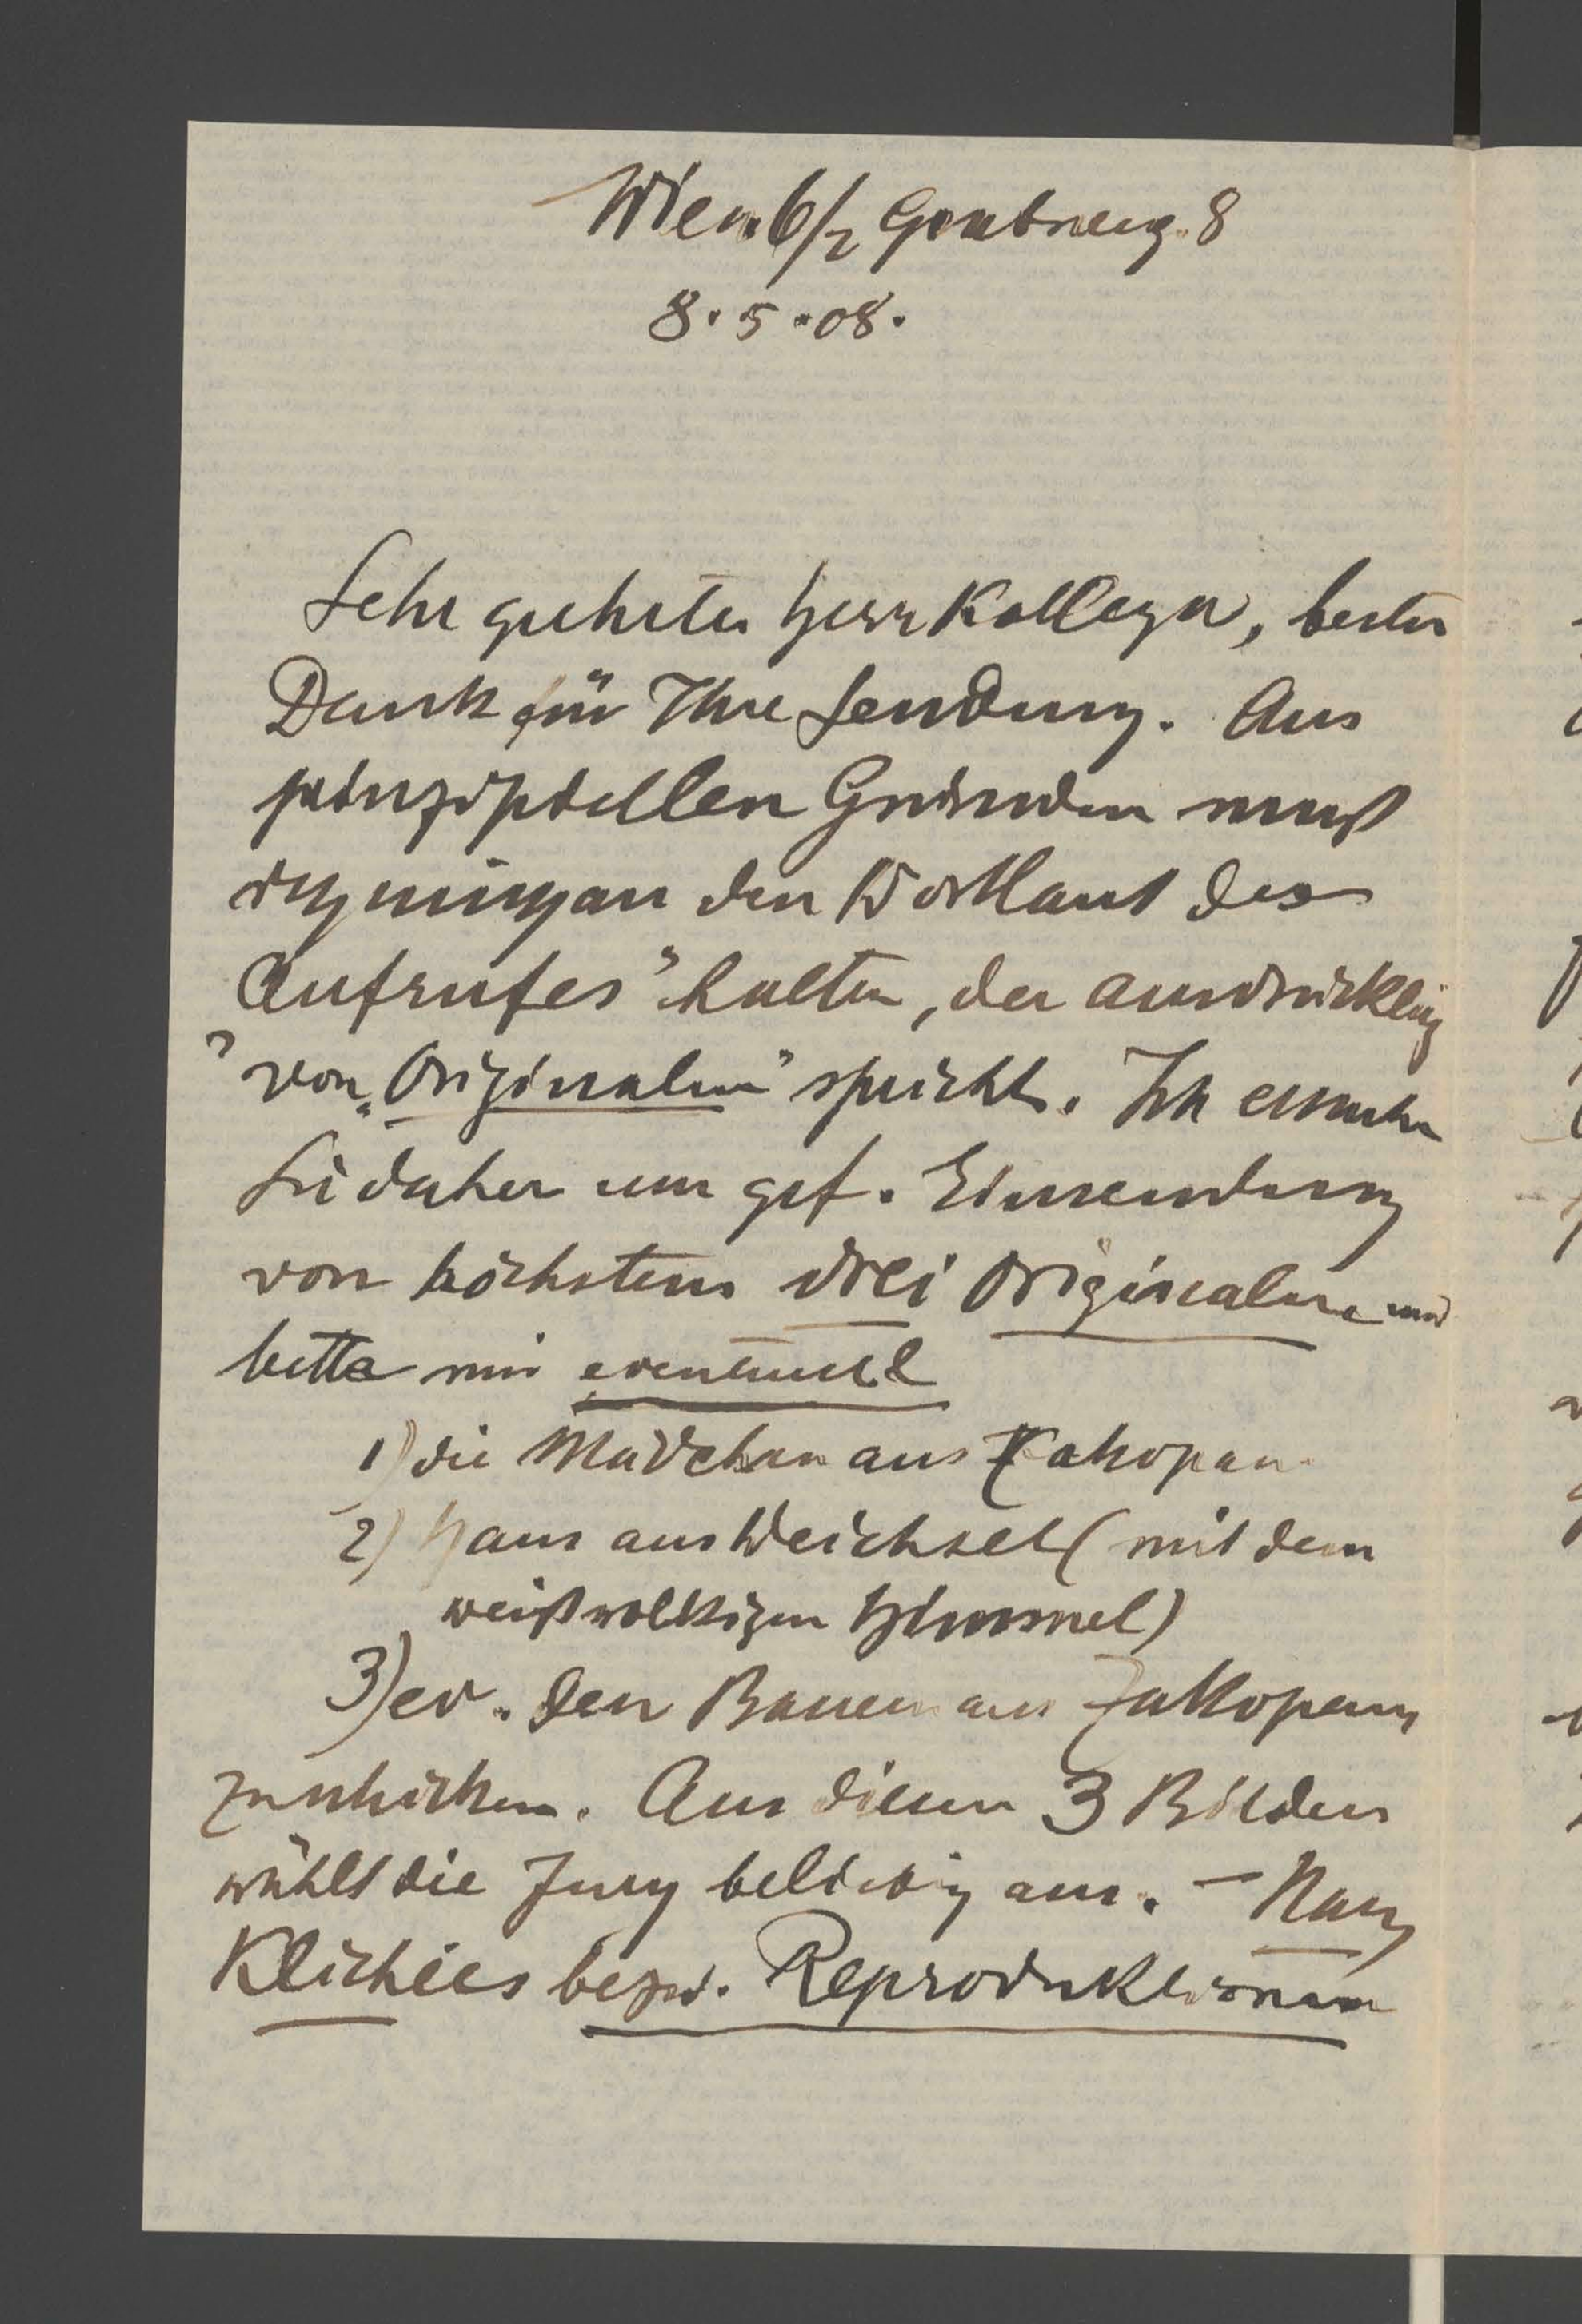 Wien 6/2 8
8.5.08.
Sehr geehrter Herr Kollege, besten
Dank für Ihre Sendung. Aus
prinzipiellen Gründen muß
ich mich an den Wortlaut des
Aufrufes" halten, der ausdrücklich
von „Originalen" spricht. Ich ersuche
Sie daher um gef. Einsendung
von höchstens drei Originalen und
bitte mir eventuell
1) die Mädchen aus Zakopane
2) Haus aus Weichsel (mit dem
weißwolkigen Himmel)
3) ev. den Bauern aus Zakopane
zu schicken. Aus diesen 3 Bildern
wählt die Jury beliebig aus. – Nach
Klichées bezw. Reproduktionen